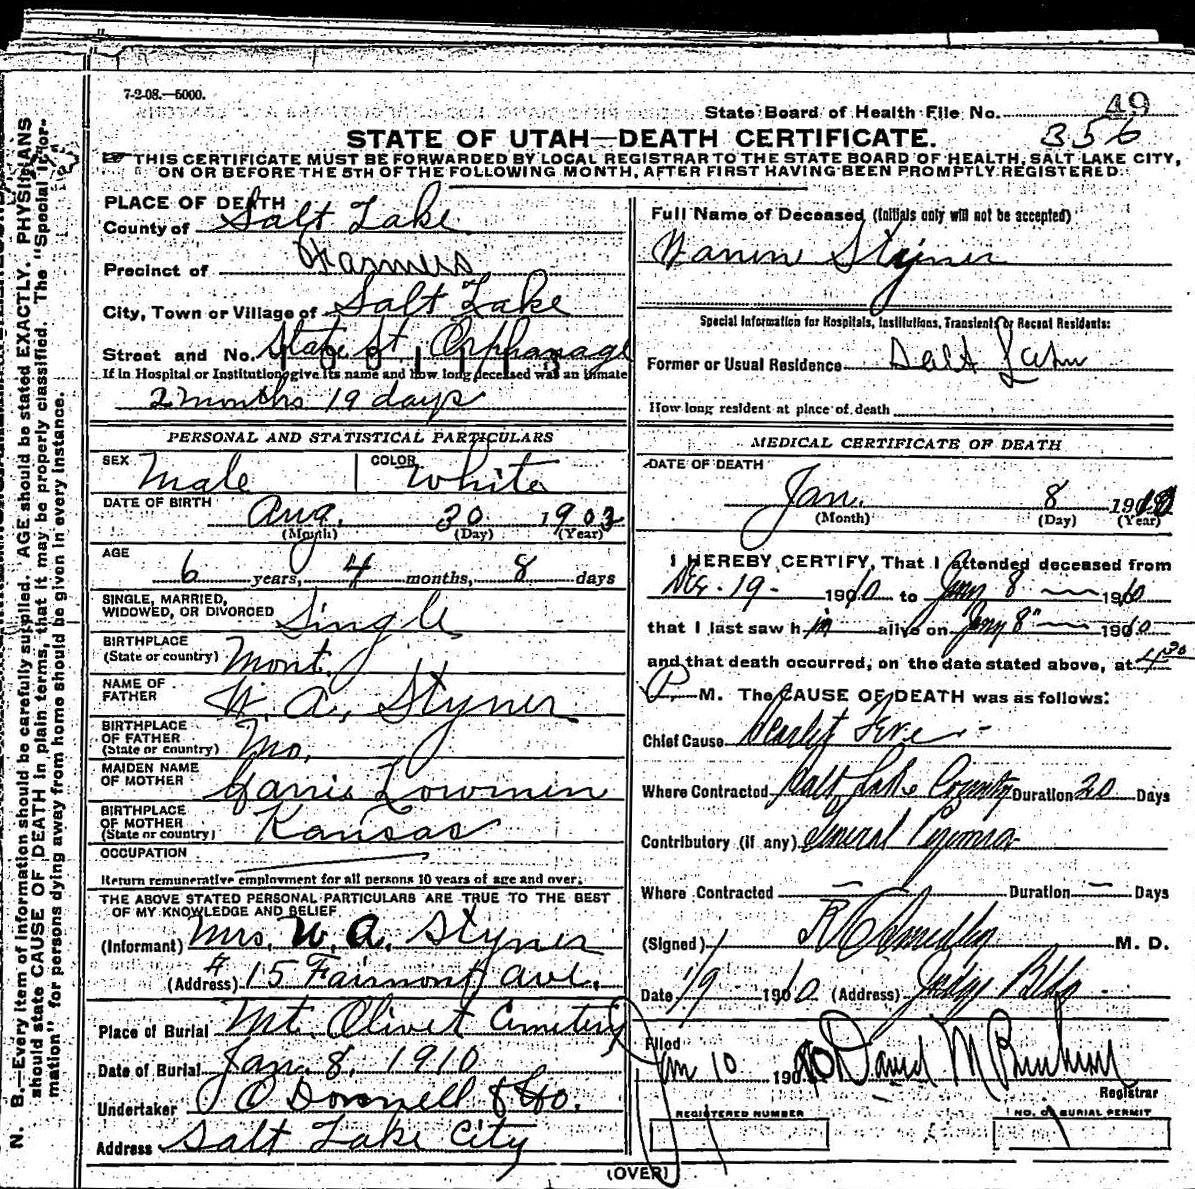 7-2-08.—5000.
State Board of Health File No. 49
356
STATE OF UTAH—DEATH CERTIFICATE.
THIS CERTIFICATE MUST BE FORWARDED BY LOCAL REGISTRAR TO THE STATE BOARD OF HEALTH, SALT LAKE CITY,
ON OR BEFORE THE 5TH OF THE FOLLOWING MONTH, AFTER FIRST HAVING BEEN PROMPTLY REGISTERED.
PLACE OF DEATH
County of Salt Lake
Precinct of Farmers
City, Town or Village of Salt Lake
Street and No. State St. Orphanage
If in Hospital or Institution give its name and how long deceased was an inmate
2 months 19 days
PERSONAL AND STATISTICAL PARTICULARS
SEX Male COLOR White
DATE OF BIRTH Aug. 30 1903
(Month) (Day) (Year)
AGE
6 years, 4 months, 8 days
SINGLE, MARRIED,
WIDOWED, OR DIVORCED Single
BIRTHPLACE
(State or country) Mont.
NAME OF
FATHER W. A. Styner
BIRTHPLACE
OF FATHER
(State or country) Mo.
MAIDEN NAME
OF MOTHER Lowmen
BIRTHPLACE
OF MOTHER
(State or country) Kansas
OCCUPATION
Return remunerative employment for all persons 10 years of age and over.
THE ABOVE STATED PERSONAL PARTICULARS ARE TRUE TO THE BEST
OF MY KNOWLEDGE AND BELIEF
(Informant) Mrs. W. A. Styner
(Address) # 15 Fairmont Ave.
Place of Burial Mt. Olivet Cemetery
Date of Burial Jan. 8. 1910
Undertaker O'Donnell & Co.
Address Salt Lake City
Full Name of Deceased (Initials only will not be accepted)
Styner
Special Information for Hospitals, Institutions, Transients or Recent Residents:
Former or Usual Residence Salt Lake
How long resident at place of death
MEDICAL CERTIFICATE OF DEATH
DATE OF DEATH
Jan. 8 1910
(Month) (Day) (Year)
I HEREBY CERTIFY, That I attended deceased from
Dec. 19 - 1910 to Jany 8 1910
that I last saw him alive on Jany 8" 1910
and that death occurred, on the date stated above, at 4 30
P. M. The CAUSE OF DEATH was as follows:
Chief Cause Scarlet Fever -
Where Contracted Salt Lake County Duration 20 Days
Contributory (if any) General
Where Contracted — Duration — Days
(Signed) M. D.
Date 1/9 1910 (Address) Judge Bldg.
Filed
Jan 10 1910 David M
Registrar
REGISTERED NUMBER
NO. OF BURIAL PERMIT
(OVER)
N. B.—Every item of information should be carefully supplied. AGE should be stated EXACTLY. PHYSICIANS
should state CAUSE OF DEATH in plain terms, that it may be properly classified. The "Special Infor-
mation" for persons dying away from home should be given in every instance.